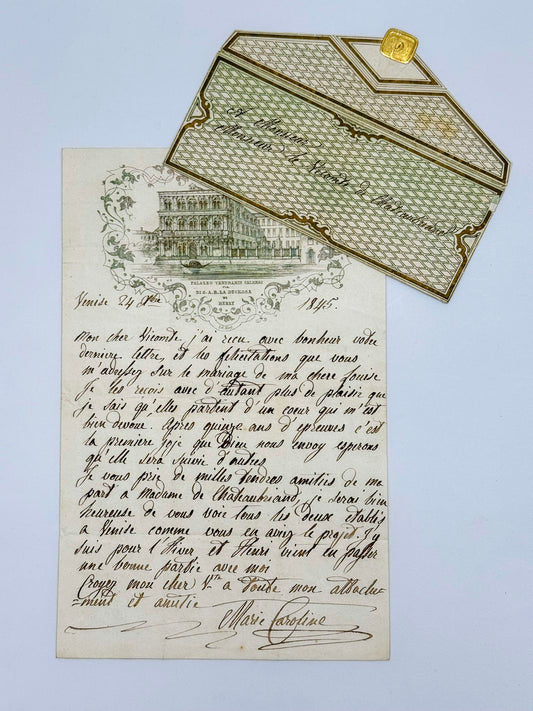 A Monsieur
Monsieur le Vicomte de Chateaubriand
PALAZZO VENDRAMIN CALERGI
DI S. A. R. LA DUCHESSA
DI
BERRY
Venise 24 1845.
Mon cher Vicomte j'ai reçu avec bonheur votre
derniere lettre, et les felicitations que vous
m'adressez sur le mariage de ma chere Louise
je les reçois avec d'autant plus de plaisir que
je sais qu'elles partent d'un coeur qui m'est
bien devoué. Apres quinze ans d'epreuves c'est
la premiere joje que Dieu nous envoy esperons
qu'elle sera suivie d'autres
Je vous prie de milles tendres amitiés de ma
part à Madame de Chateaubriand, je serai bien
heureuse de vous voir tous les deux etablis
a Venise comme vous en aviez le projet. J'y
suis pour l'Hiver et Henri vient en passer
une bonne partie avec moi
Croyez mon cher Vte a toute mon attache-
-ment et amitie
Marie Caroline